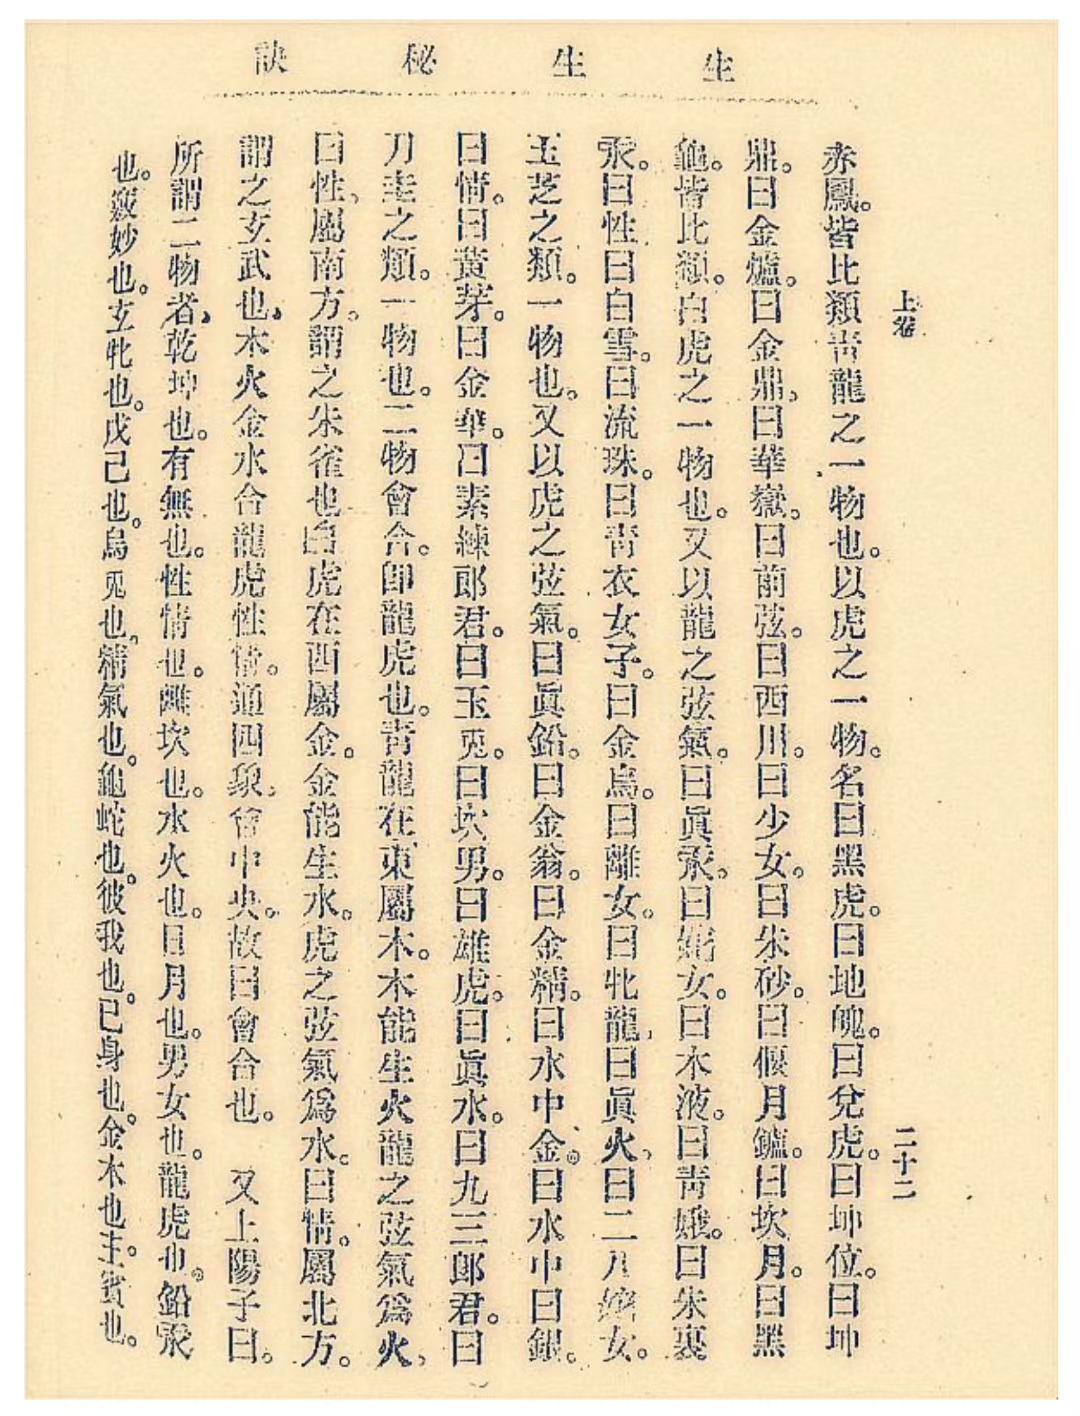 生生秘訣
上卷
二十二
赤鳳。皆比類靑龍之一物也。以虎之一物。名曰黑虎。曰地魄。曰兌虎。曰坤位。曰坤
鼎。曰金爐。曰金鼎。曰華嶽。曰前弦。曰西川。曰少女。曰朱砂。曰偃月鑪。曰坎月。曰黑
龜。皆比類。白虎之一物也。又以龍之弦氣。曰眞汞。曰姹女。曰木液。曰靑娥。曰朱裏
汞。曰性曰白雪。曰流珠。曰靑衣女子。曰金烏。曰離女。曰牝龍、曰眞火、曰二八姹女。
玉芝之類。一物也。又以虎之弦氣。曰眞鉛。曰金翁。曰金精。曰水中金。曰水中曰銀。
曰情。曰黃芽。曰金華。曰素練郎君。曰玉兎。曰坎男。曰雄虎。曰眞水。曰九三郎君。曰
刀圭之類。一物也。二物會合。卽龍虎也。靑龍在東屬木。木能生火龍之弦氣爲火、
曰性、屬南方。謂之朱雀也白虎在西屬金。金能生水。虎之弦氣爲水。曰情。屬北方。
謂之玄武也、木火金水合龍虎性情。通四象、會中央。故曰會合也。 又上陽子曰。
所謂二物者、乾坤也。有無也。性情也。離坎也。水火也。日月也。男女也。龍虎也。鉛汞
也。竅妙也。玄牝也。戊己也。烏兎也。精氣也。龜蛇也。彼我也。已身也。金木也主。賓也。